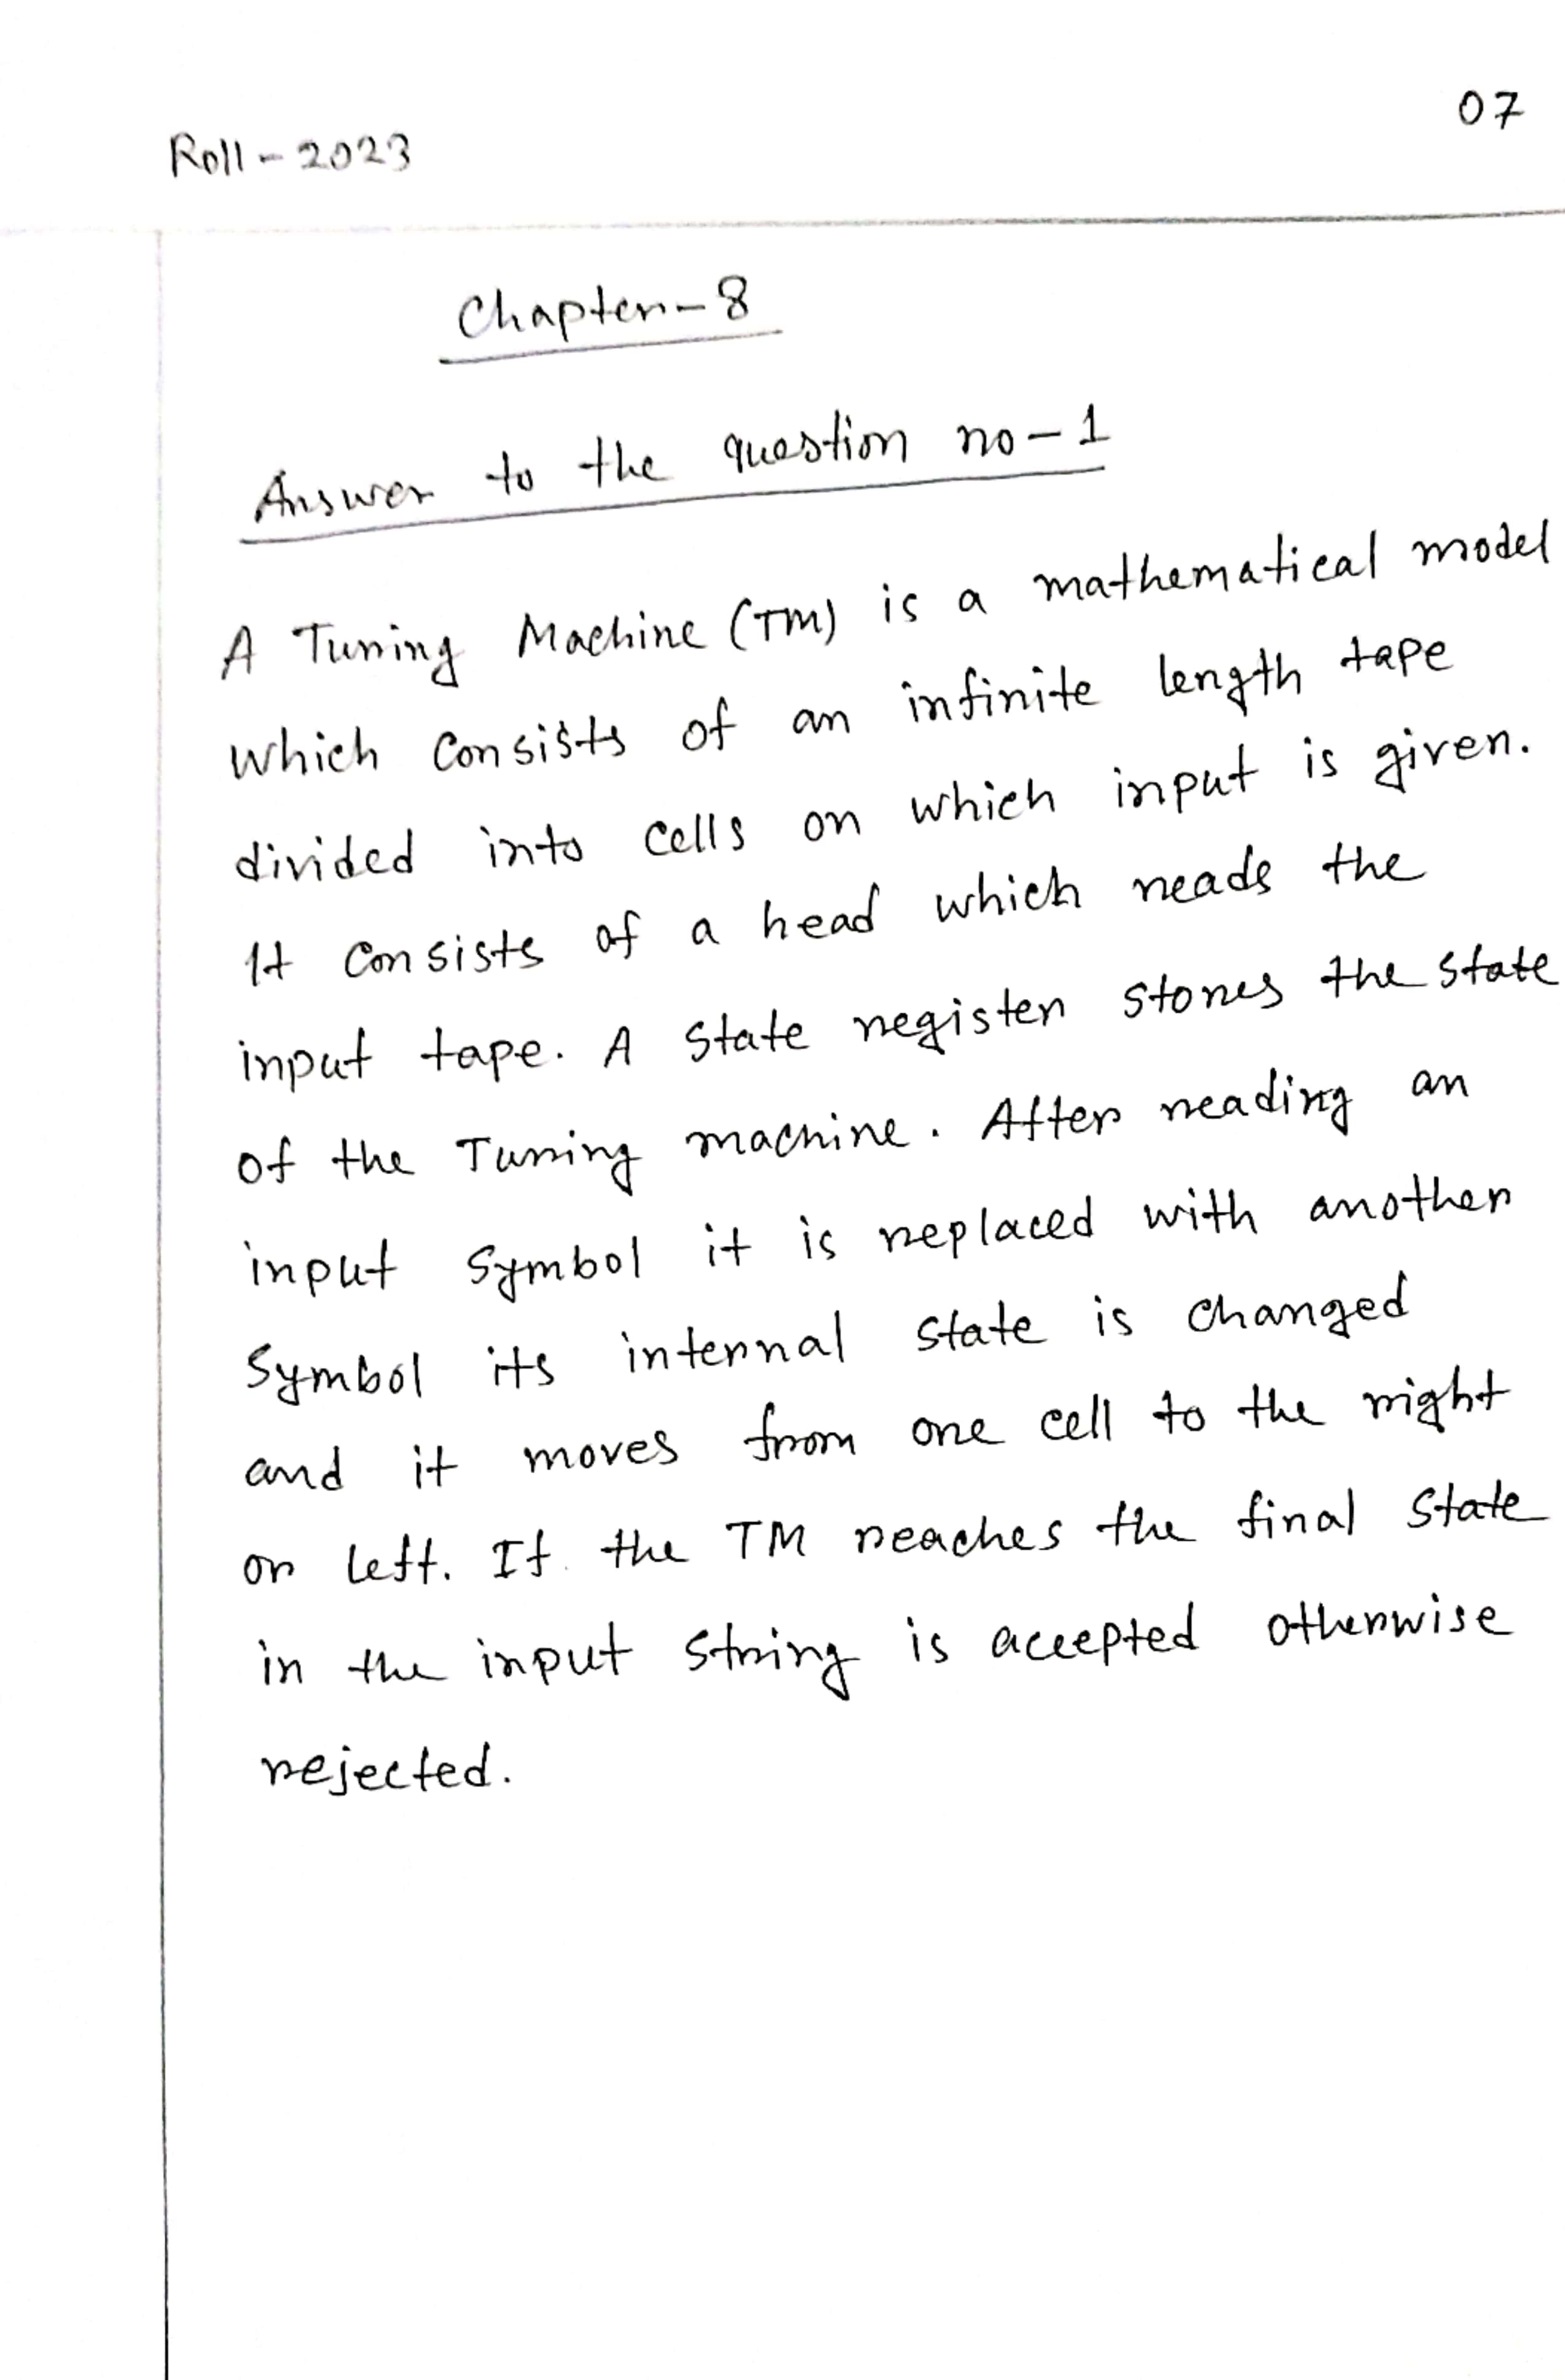 07
Roll - 2023
Chapter - 8
Answer to the question no - 1
A Turing Machine (TM) is a mathematical model
which consists of an infinite length tape
divided into cells on which input is given.
It consists of a head which reads the
input tape. A state register stores the state
of the Turing machine. After reading an
input symbol it is replaced with another
symbol its internal state is changed
and it moves from one cell to the right
or left. If the TM reaches the final state
in the input string is accepted otherwise
rejected.